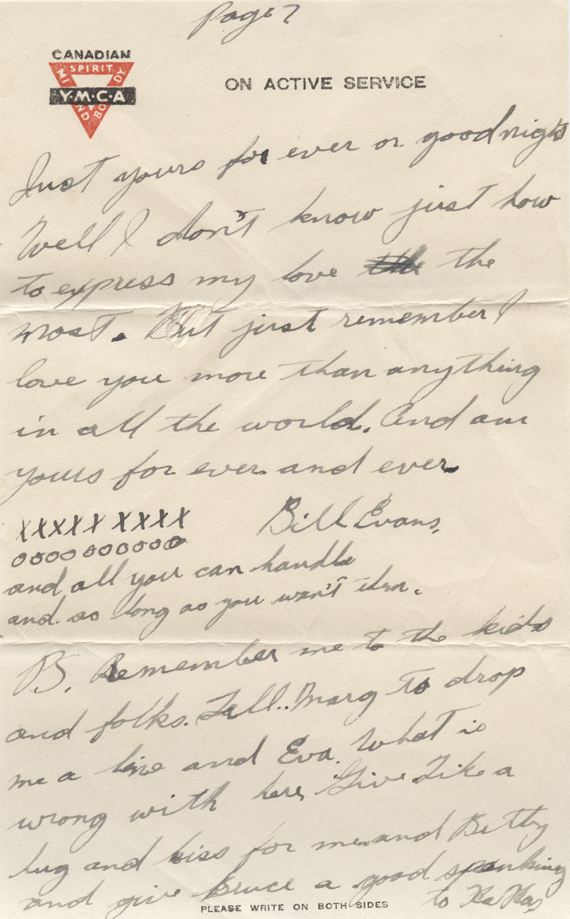 Page 7
CANADIAN
SPIRIT
MIND BODY
Y·M·C·A
ON ACTIVE SERVICE
Just yours for ever or goodnight
Well I don't know just how
to express my love the
most. But just remember I
love you more than anything
in all the world. And am
yours for ever and ever
XXXXX XXXX
OOOOOOOOOO
Bill Evans,
and all you can handle
and as long as you want them.
P.S. Remember me to the kids
and folks. Tell Marg to drop
me a line and Eva. What is
wrong with her. Give Like a
hug and kiss for me and Betty
and give Bruce a good spanking
to Ha Ha
PLEASE WRITE ON BOTH SIDES